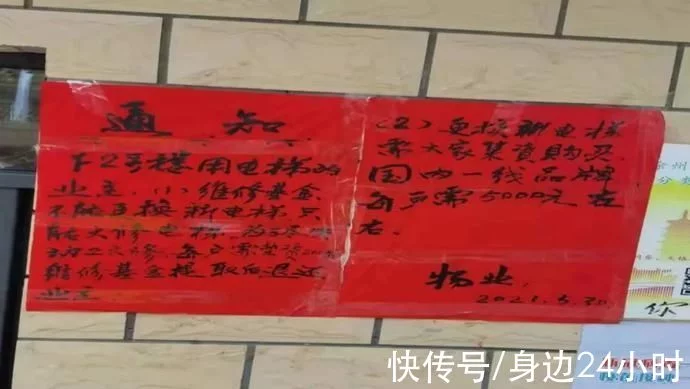 通知
下2号楼用电梯的
业主.(1)维修基金
不能更换新电梯只
能大修电梯
维修基金提取后退还
业主
(2)更换新电梯
需大家集资购买.
国内一线品牌
每户需5000元左
右.
物业.
2021.5.30.
徐州
你
快传号/身边24小时